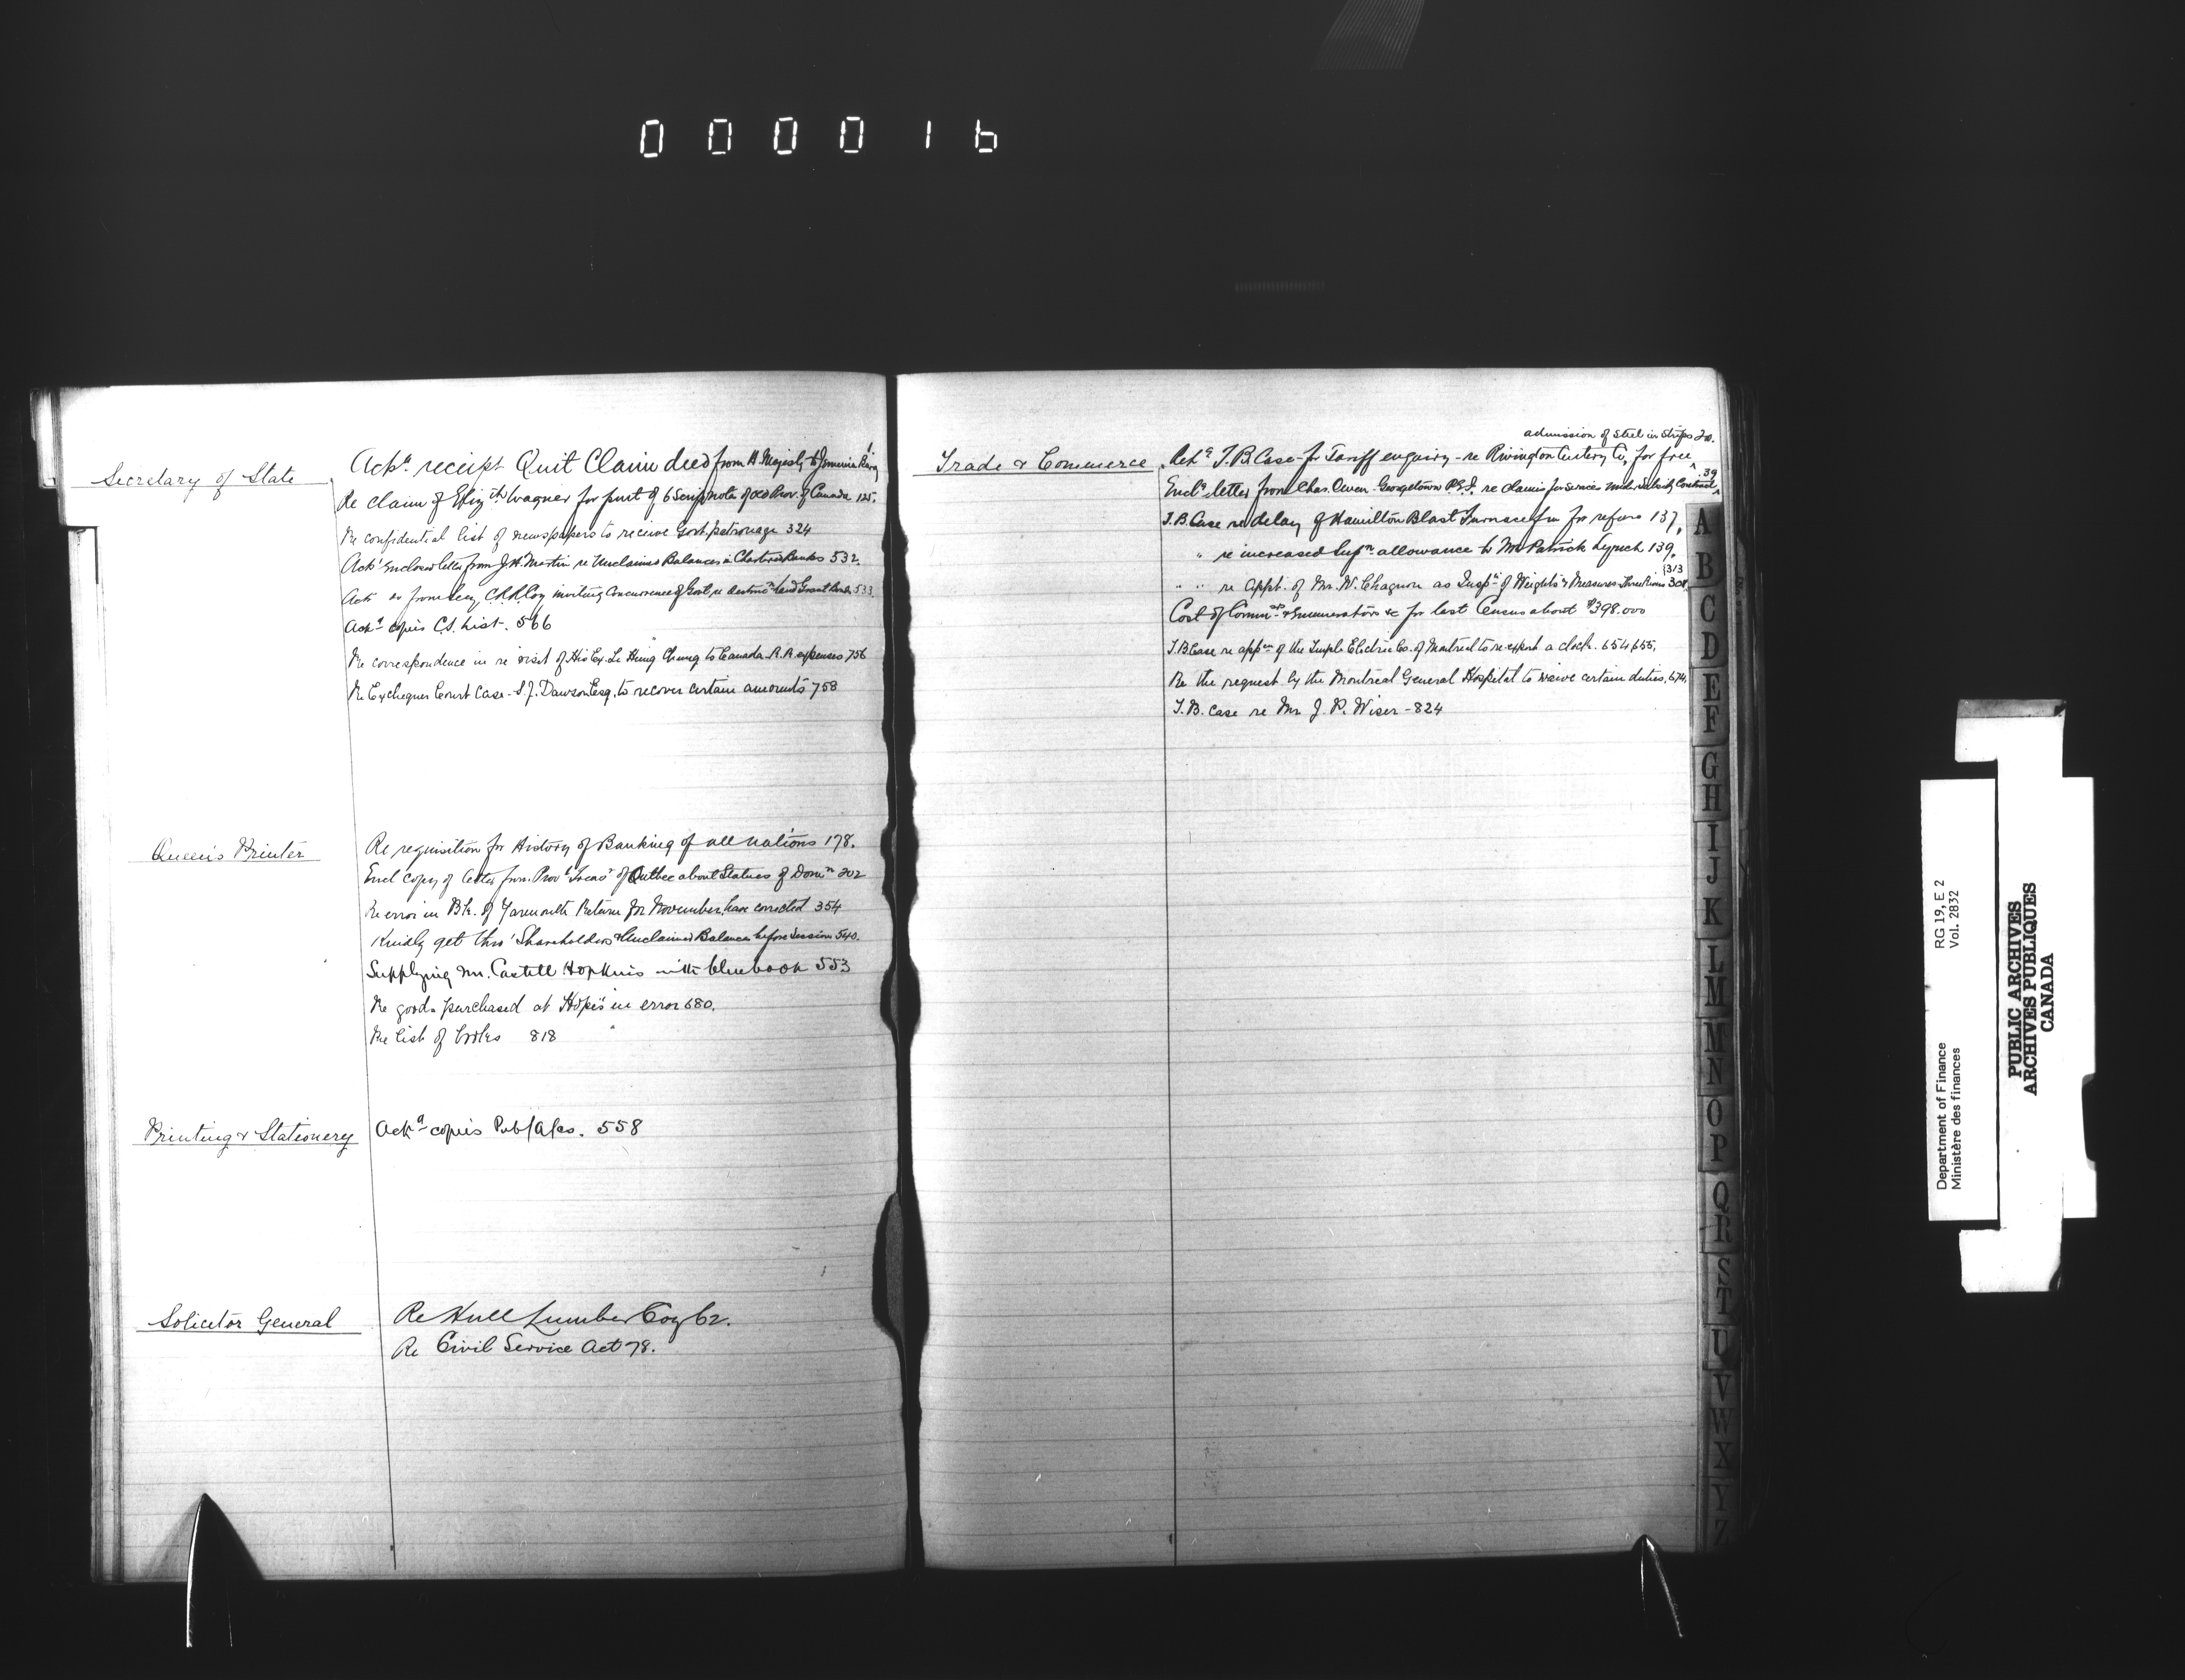 000016
Secretary of State
Ackg receipt Quit Claim deed from H. Majesty to Jemima 1
Re claim of Elizth Wagner for part of 6 Scrip note of old Prov. of Canada 125.
Re confidential list of newspapers to receive Govt. patronage 324
Ackg enclosed letter from J.H. Martin re Unclaimed Balances in Chartered Banks 532.
Ackg do from Secy C.P.R. Coy inviting concurrence of Govt. re Land Grant Bonds 533.
Ackg copies C.S. List. 566
Re correspondence in re visit of His Ex. Li Hung Chang to Canada R.R. expenses 756
Re Exchequer Court Case - S.J. Dawson Esq. to recover certain amounts 758
Queen's Printer
Re requisition for History of Banking of all nations 178.
Encl copy of letter from Provl Treasr of Quebec about Statues of Domn 202
Re error in Bk. of Yarmouth Return for November, have corrected 354
Kindly get thro' Shareholders & Unclaimed Balances before Session 540.
Supplying Mr. Castell Hopkins with bluebook 553
Re goods purchased at Hope's in error 680.
Re list of books 818
Printing & Stationery
Ackg copies Pub/a/cs. 558
Solicitor General
Re Hull Lumber Coy 62.
Re Civil Service Act 78.
Trade & Commerce
admission of Steel in Strips 20.
Retg T.B Case for Tariff enquiry - re Rivington Cutlery Co, for free
Enclg letter from Chas. Owen Georgetown P.E.I. re claims for services under Contract 39
T.B. Case re delay of Hamilton Blast Furnace for refund 137,
" re increased Supn allowance to Mr Patrick Lynch 139.
" " re Appt. of Mr. N. Chagnon as Inspr of Weights & Measures Three Rivers 308 313
Cost of Commrs & Enumerators &c for last Census about $398.000
T.B Case re appcn of the Temple Electric Co. of Montreal to re-export a clock. 654, 655,
Re the request by the Montreal General Hospital to waive certain duties, 674.
T.B. Case re Mr J. P. Wiser - 824
A
B
C
D
E
F
G
H
I
J
K
L
M
M
N
O
P
Q
R
S
T
U
V
W
X
Y
Z
Department of Finance
Ministère des finances
RG 19, E 2
Vol. 2832
PUBLIC ARCHIVES
ARCHIVES PUBLIQUES
CANADA